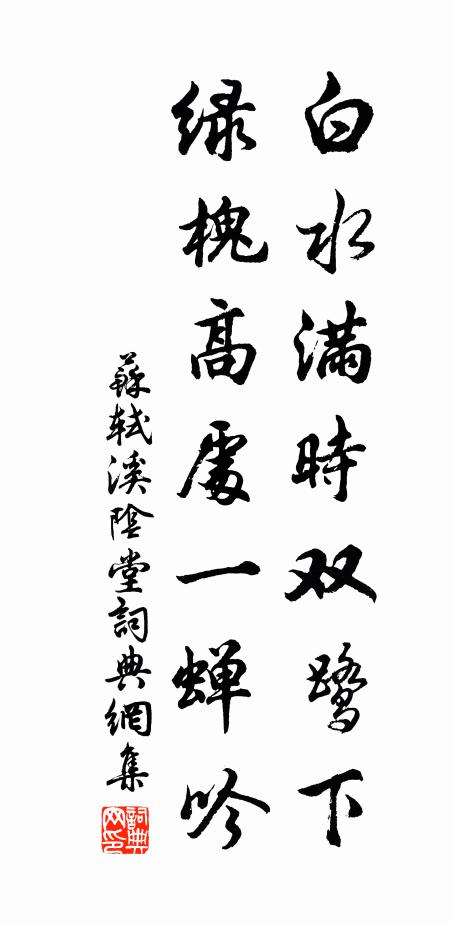 白水滿時双鹭下
绿槐高處一蝉吟
蘇軾溪陰堂詞典網集
詞典网印